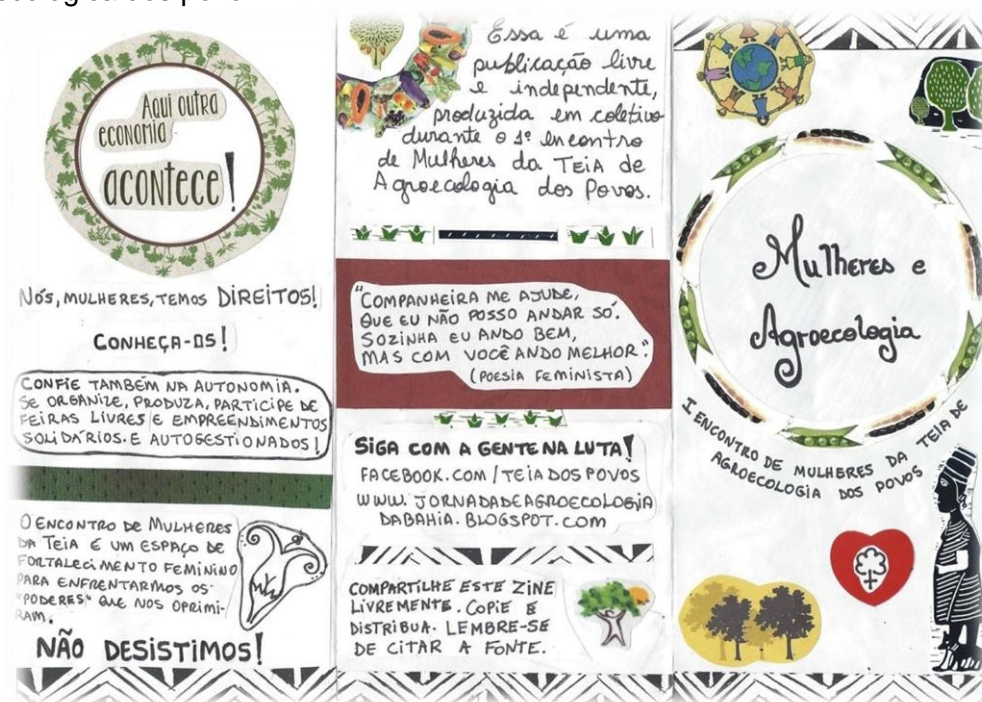 Aqui outra
economia
acontece!
NÓS, MULHERES, TEMOS DIREITOS!
CONHEÇA-OS!
CONFIE TAMBÉM NA AUTONOMIA.
SE ORGANIZE, PRODUZA, PARTICIPE DE
FEIRAS LIVRES E EMPREENDIMENTOS
SOLIDÁRIOS.E AUTOGESTIONADOS!
O ENCONTRO DE MULHERES
DA TEIA É UM ESPAÇO DE
FORTALECIMENTO FEMININO
PARA ENFRENTARMOS OS
"PODERES" QUE NOS OPRIMI-
RAM.
NÃO DESISTIMOS!
Essa é uma
publicação livre
e independente,
produzida em coletivo
durante o 1º encontro
de Mulheres da TEIA de
Agroecologia dos Povos.
"COMPANHEIRA ME AJUDE,
QUE EU NÃO POSSO ANDAR SÓ.
SOZINHA EU ANDO BEM,
MAS COM VOCÊ ANDO MELHOR."
(POESIA FEMINISTA)
SIGA COM A GENTE NA LUTA!
FACEBOOK.COM/TEIADOSPOVOS
WWW.JORNADADEAGROECOLOGIA
DABAHIA.BLOGSPOT.COM
COMPARTILHE ESTE ZINE
LIVREMENTE. COPIE E
DISTRIBUA. LEMBRE-SE
DE CITAR A FONTE.
Mulheres e
Agroecologia
I ENCONTRO DE MULHERES DA TEIA DE
AGROECOLOGIA DOS POVOS